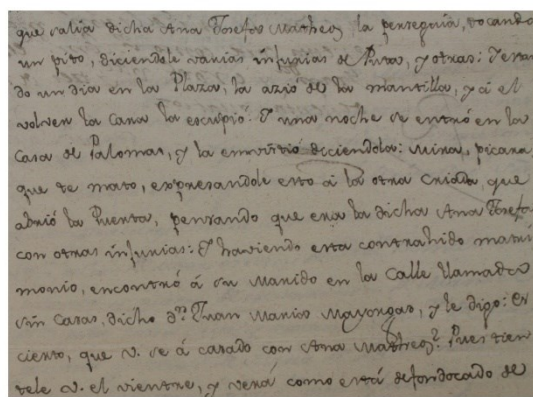 que salia dicha Ana Josefa Matheos la perseguia, tocando
un pito, diciendole varias infurias de Puta, y otras: Y estan
do un dia en la Plaza, la azió de la mantilla, y á el
volver la Cara la escupio: Y una noche se entró en la
Casa de Palomas, y la emvistió diciendola: Mira, picara
que te mato, expresandole esto á la otra Criada, que
abrió la Puerta, pensando que era la dicha Ana Josefa
con otras infurias: Y haviendo esta contrahido matri
monio, encontró á su Marido en la Calle llamada
sin Casas, dicho Dn. Juan Manios Mayorgas, y le digo: Es
cierto, que V. se á casado con Ana Matheos? Pues tien
tele V. el vientre, y verá como está desfondocado de